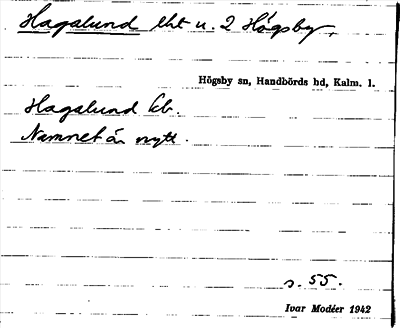 Hagalund lht u. 2 Högsby.
Högsby sn, Handbörds hd, Kalm. l.
Hagalund
Namnet är nytt.
s. 55.
Ivar Modéer 1942